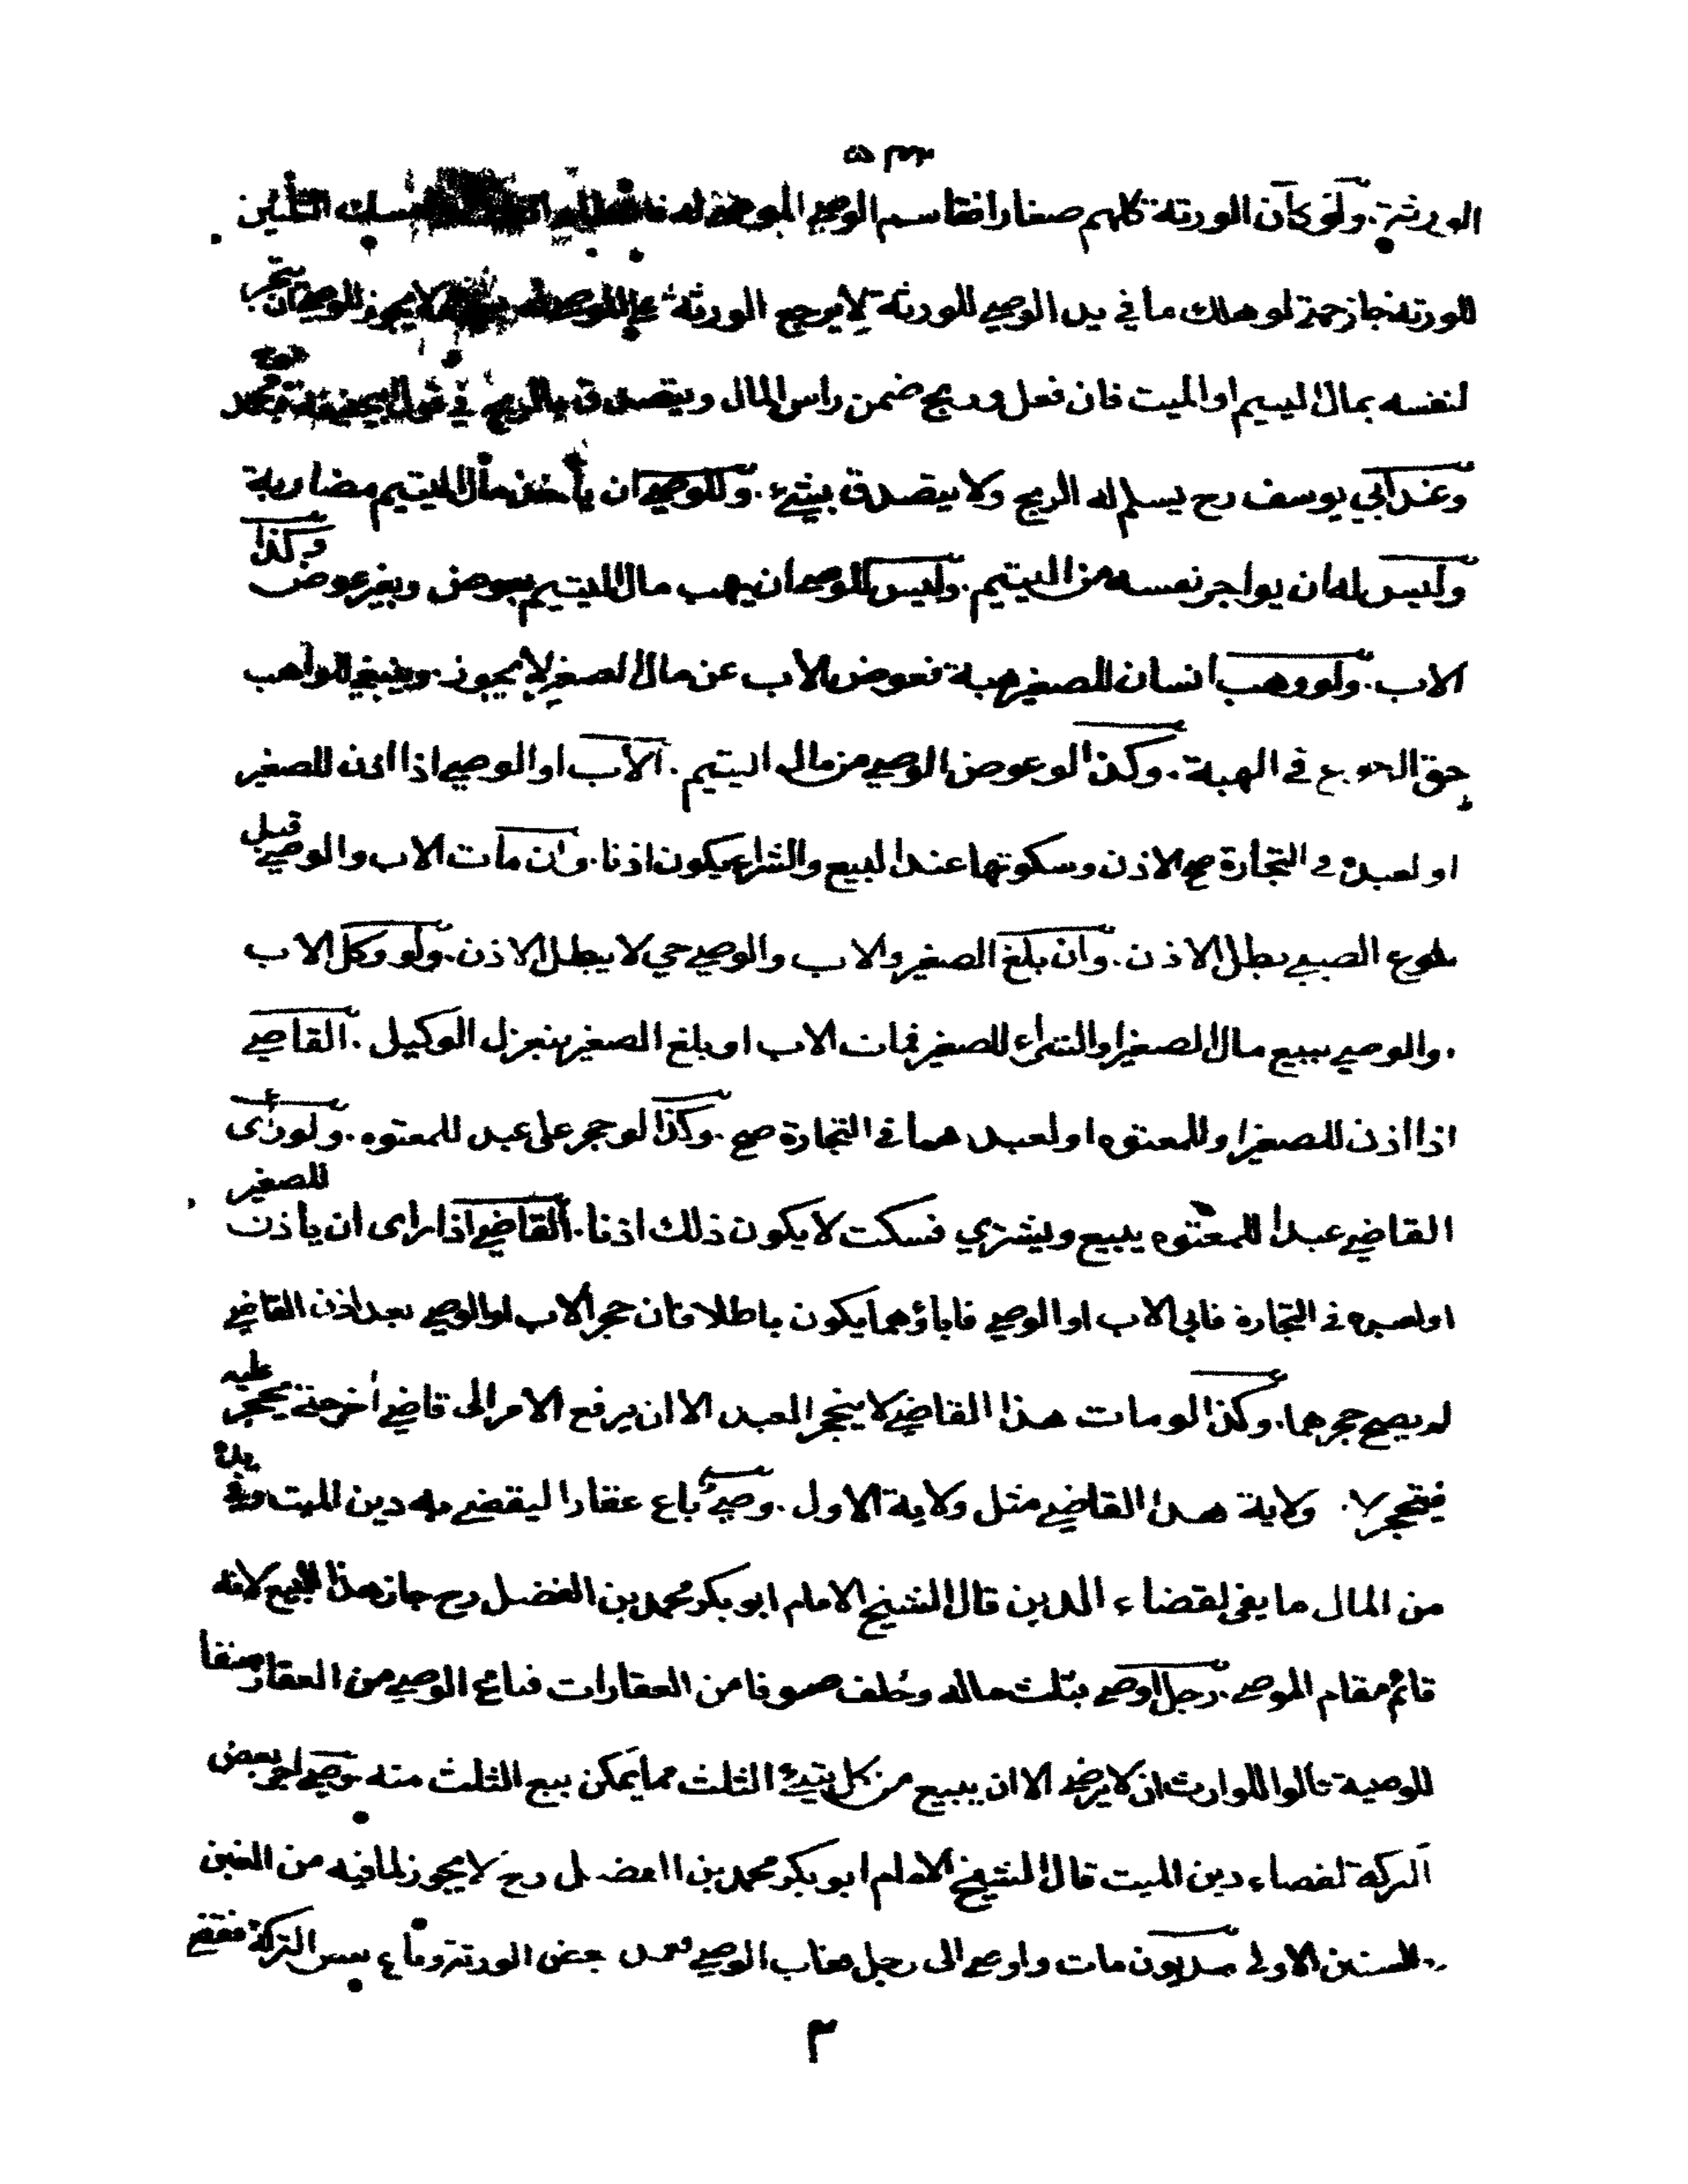 الورثة. ولو كان الورثة كلهم صغارا فقاسم الوصي الموصى له فاعطاه الثلث وامسك الثلثين
للورثة جاز حتى لو هلك ما في يد الوصي للورثة لا يرجع الورثة على الموصى له لا يجوز للوصي ان يتجر
لنفسه بمال اليتيم او الميت فان فعل وربح ضمن راس المال ويتصدق بالربح في قول ابي حنيفة ومحمد
وعند ابي يوسف رح يسلم له الربح ولا يتصدق بشيء. وللوصي ان يأخذ مال اليتيم مضاربة
وليس له ان يواجر نفسه من اليتيم. وليس للوصي ان يهب مال اليتيم بعوض وبغير عوض وكذا
الاب. ولو وهب انسان للصغير هبة فعوض الاب عن مال الصغير لا يجوز. ويبقى للواهب
حق الرجوع في الهبة. وكذا لو عوض الوصي من مال اليتيم. الاب او الوصي اذا اذن للصغير
او لعبده في التجارة صح الاذن وسكوتهما عند البيع والشراء يكون اذنا. وان مات الاب والوصي قبل
بلوغ الصبي بطل الاذن. وان بلغ الصغير والاب والوصي حي لا يبطل الاذن. ولو وكل الاب
والوصي ببيع مال الصغير او الشراء للصغير فمات الاب او بلغ الصغير ينعزل الوكيل. القاضي
اذا اذن للصغير او للمعتوه او لعبدهما في التجارة صح. وكذا لو حجر على عبد للمعتوه. ولو رأى
القاضي عبدا للمعتوه يبيع ويشتري فسكت لا يكون ذلك اذنا. القاضي اذا راى ان ياذن للصغير
او لعبده في التجارة فابى الاب او الوصي فاباؤهما يكون باطلا فان حجر الاب او الوصي بعد اذن القاضي
لم يصح حجرهما. وكذا لو مات هذا القاضي لا ينحجر العبد الا ان يرفع الامر الى قاضي اخر حتى يحجر عليه
فينحجر لا. ولاية هذا القاضي مثل ولاية الاول. وصي باع عقارا ليقضي به دين الميت وفي يده
من المال ما يفي لقضاء الدين قال الشيخ الامام ابو بكر محمد بن الفضل رح جاز هذا البيع لانه
قائم مقام الموصي. رجل اوصى بثلث ماله وخلف صنوفا من العقارات فباع الوصي من العقار صنفا
للوصية قالوا للوارث ان لا يرضى الا ان يبيع من كل شيء الثلث مما يمكن بيع الثلث منه وصي اجر بعض
التركة لقضاء دين الميت قال الشيخ الامام ابو بكر محمد بن الفضل رح لا يجوز لما فيه من الغبن
للسنين الاولى مديون مات واوصى الى رجل فغاب الوصي فعمد بعض الورثة وباع بعض التركة فقضى
٣